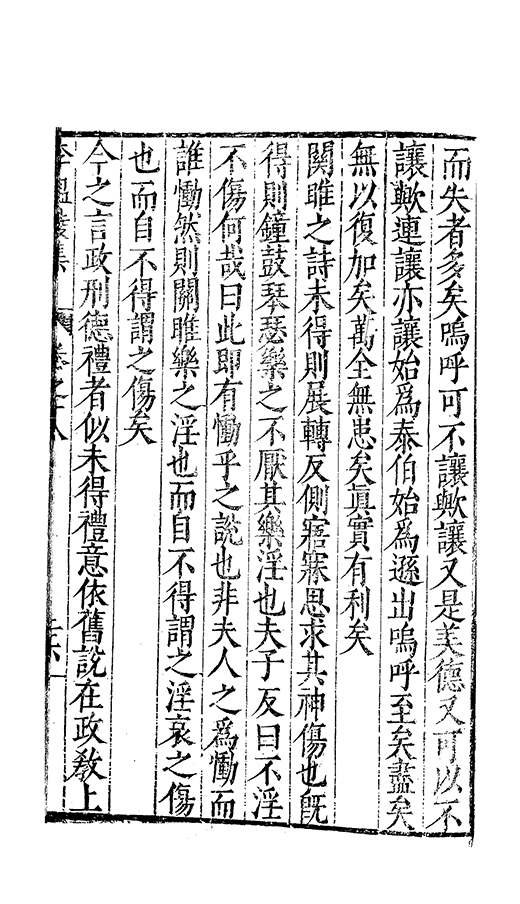 而失者多矣嗚呼可不讓歟讓又是美德又可以不
讓歟連讓亦讓始爲泰伯始爲遜出嗚呼至矣盡矣
無以復加矣萬全無患矣眞實有利矣
関雎之詩未得則展轉反側寤寐思求其神傷也旣
得則鐘鼓琴瑟樂之不厭其樂淫也夫子反曰不淫
不傷何哉曰此即有慟乎之說也非夫人之爲慟而
誰慟然則關雎樂之淫也而自不得謂之淫哀之傷
也而自不得謂之傷矣
今之言政刑德禮者似未得禮意依舊說在政敎上
李溫陵集 卷之十八